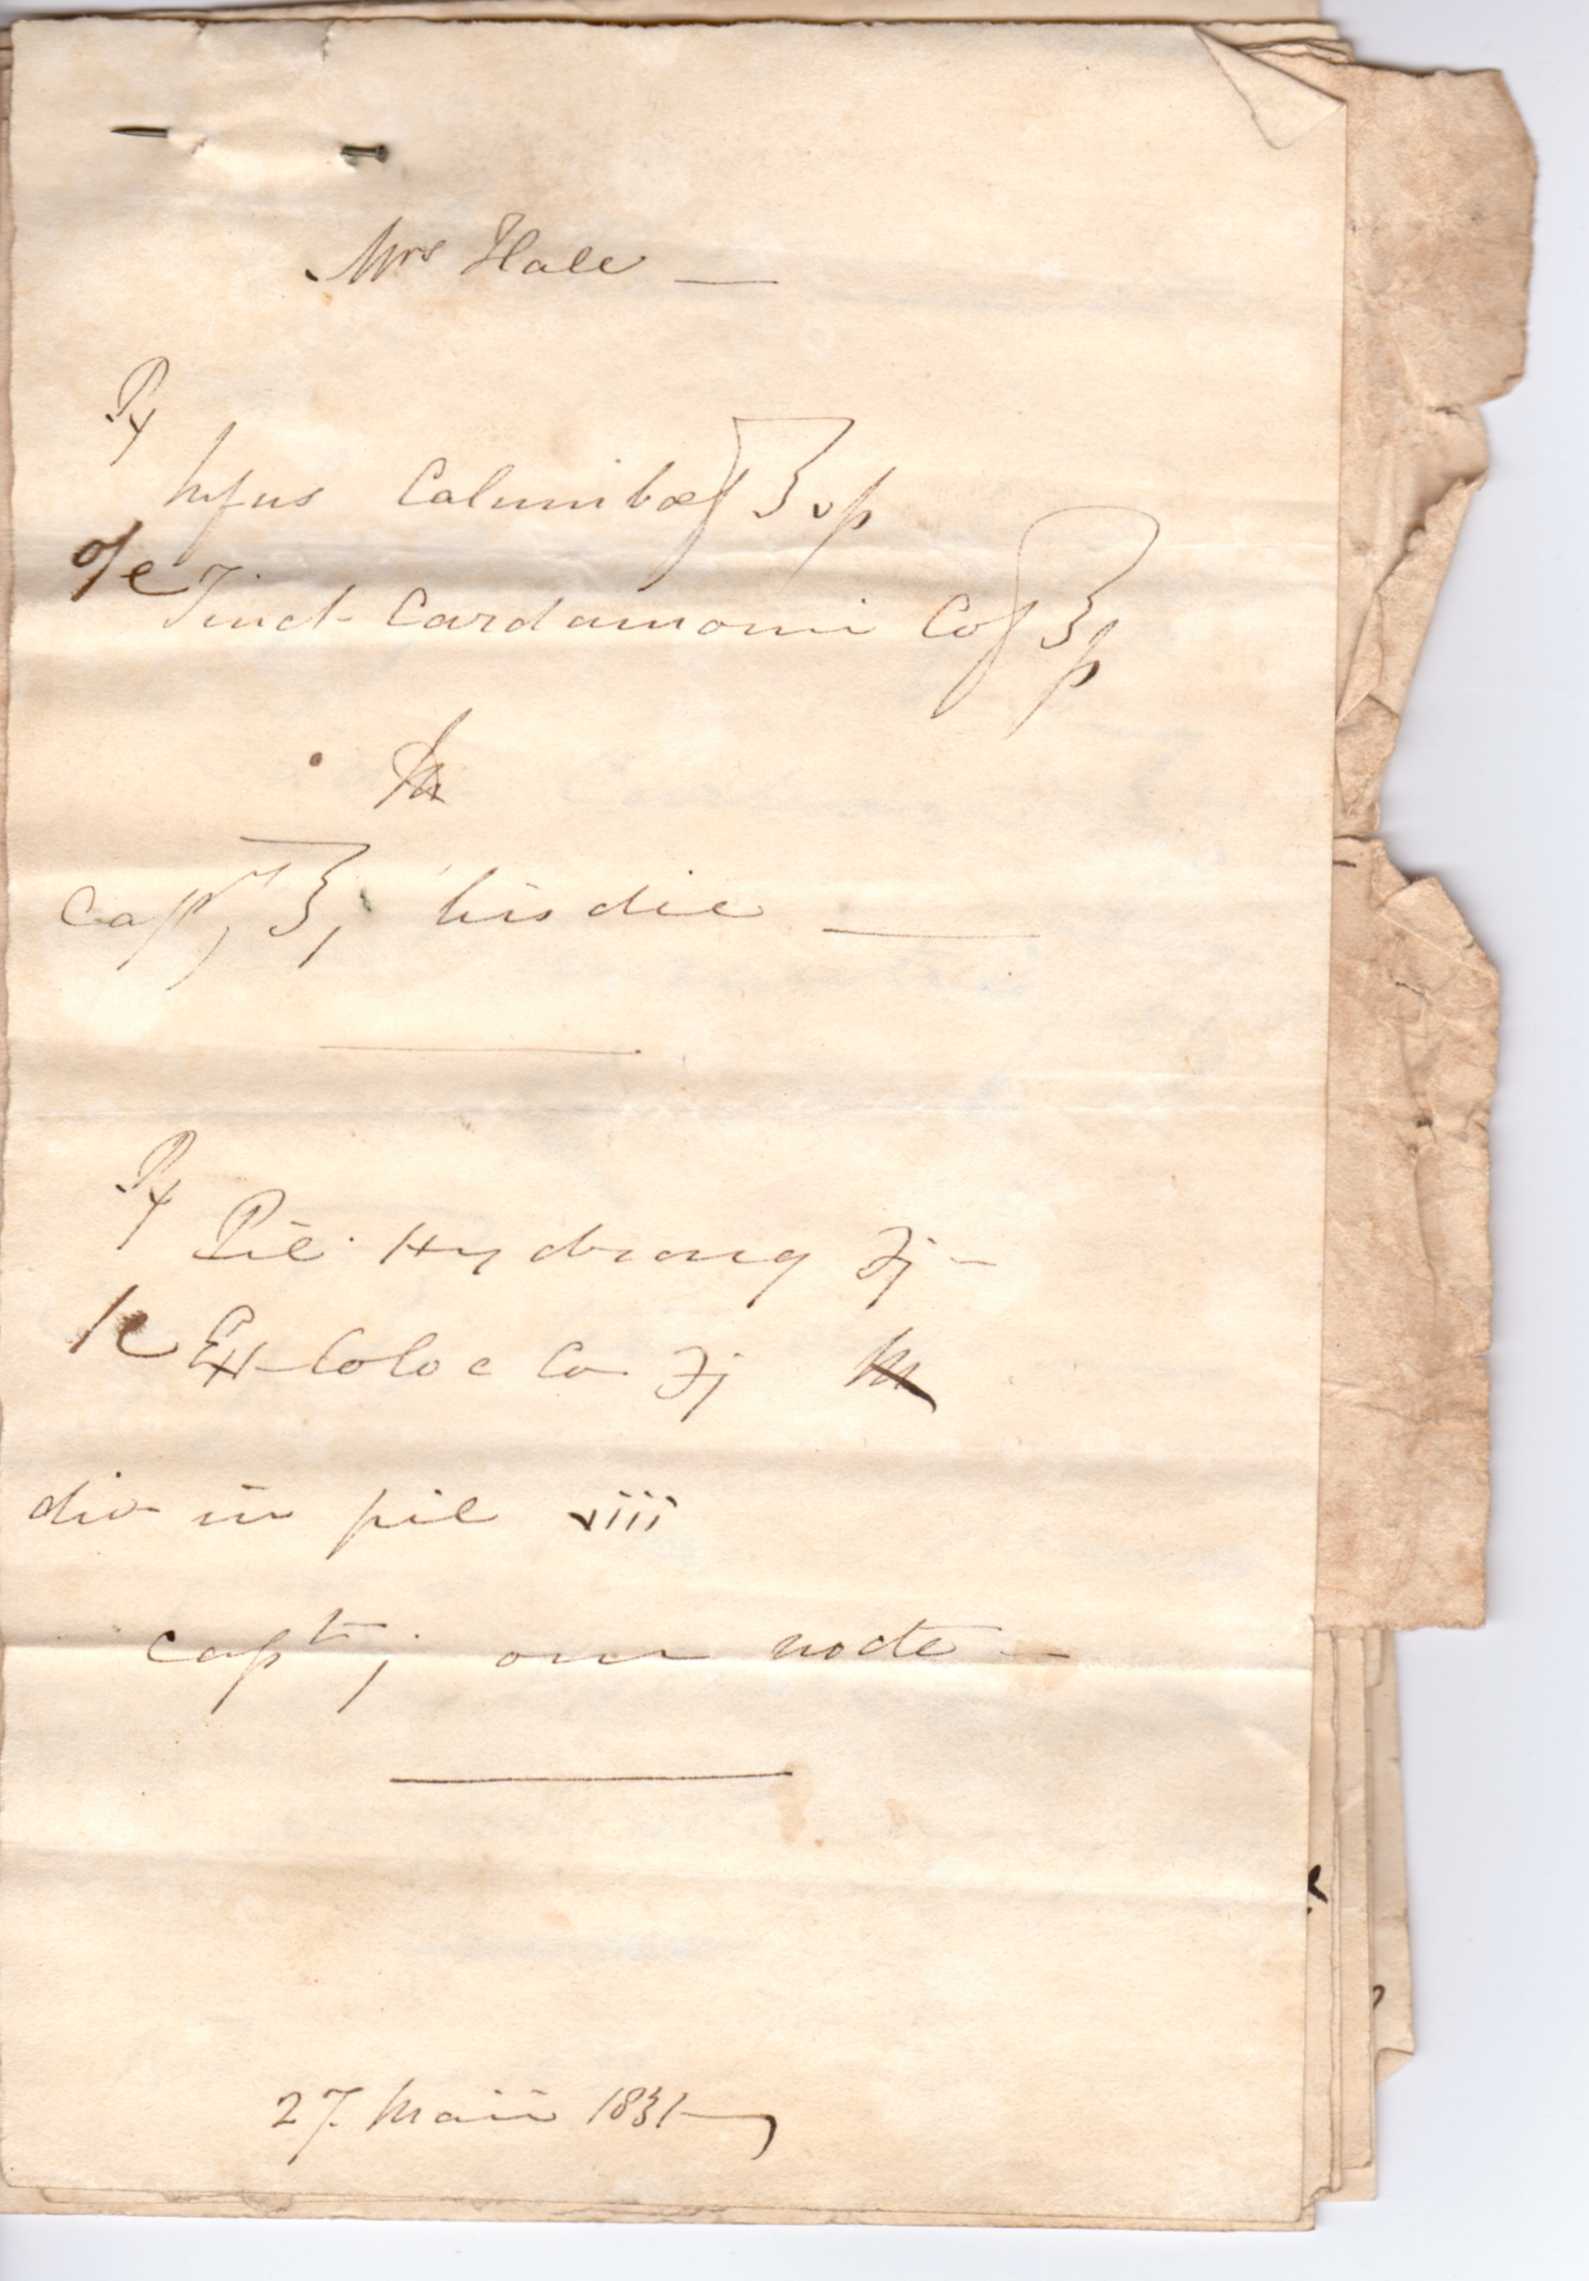 Mrs Hale —
℞
Infus Calumbae ℥vß
o/c Tinct Cardamomi Co ℥ß
M
Capt ℥j bis die —
℞
Pil. Hydrarg ℈j —
/c Ext Coloc Co ℈j M
div in pil viii
capt j omn nocte —
27 Maii 1831